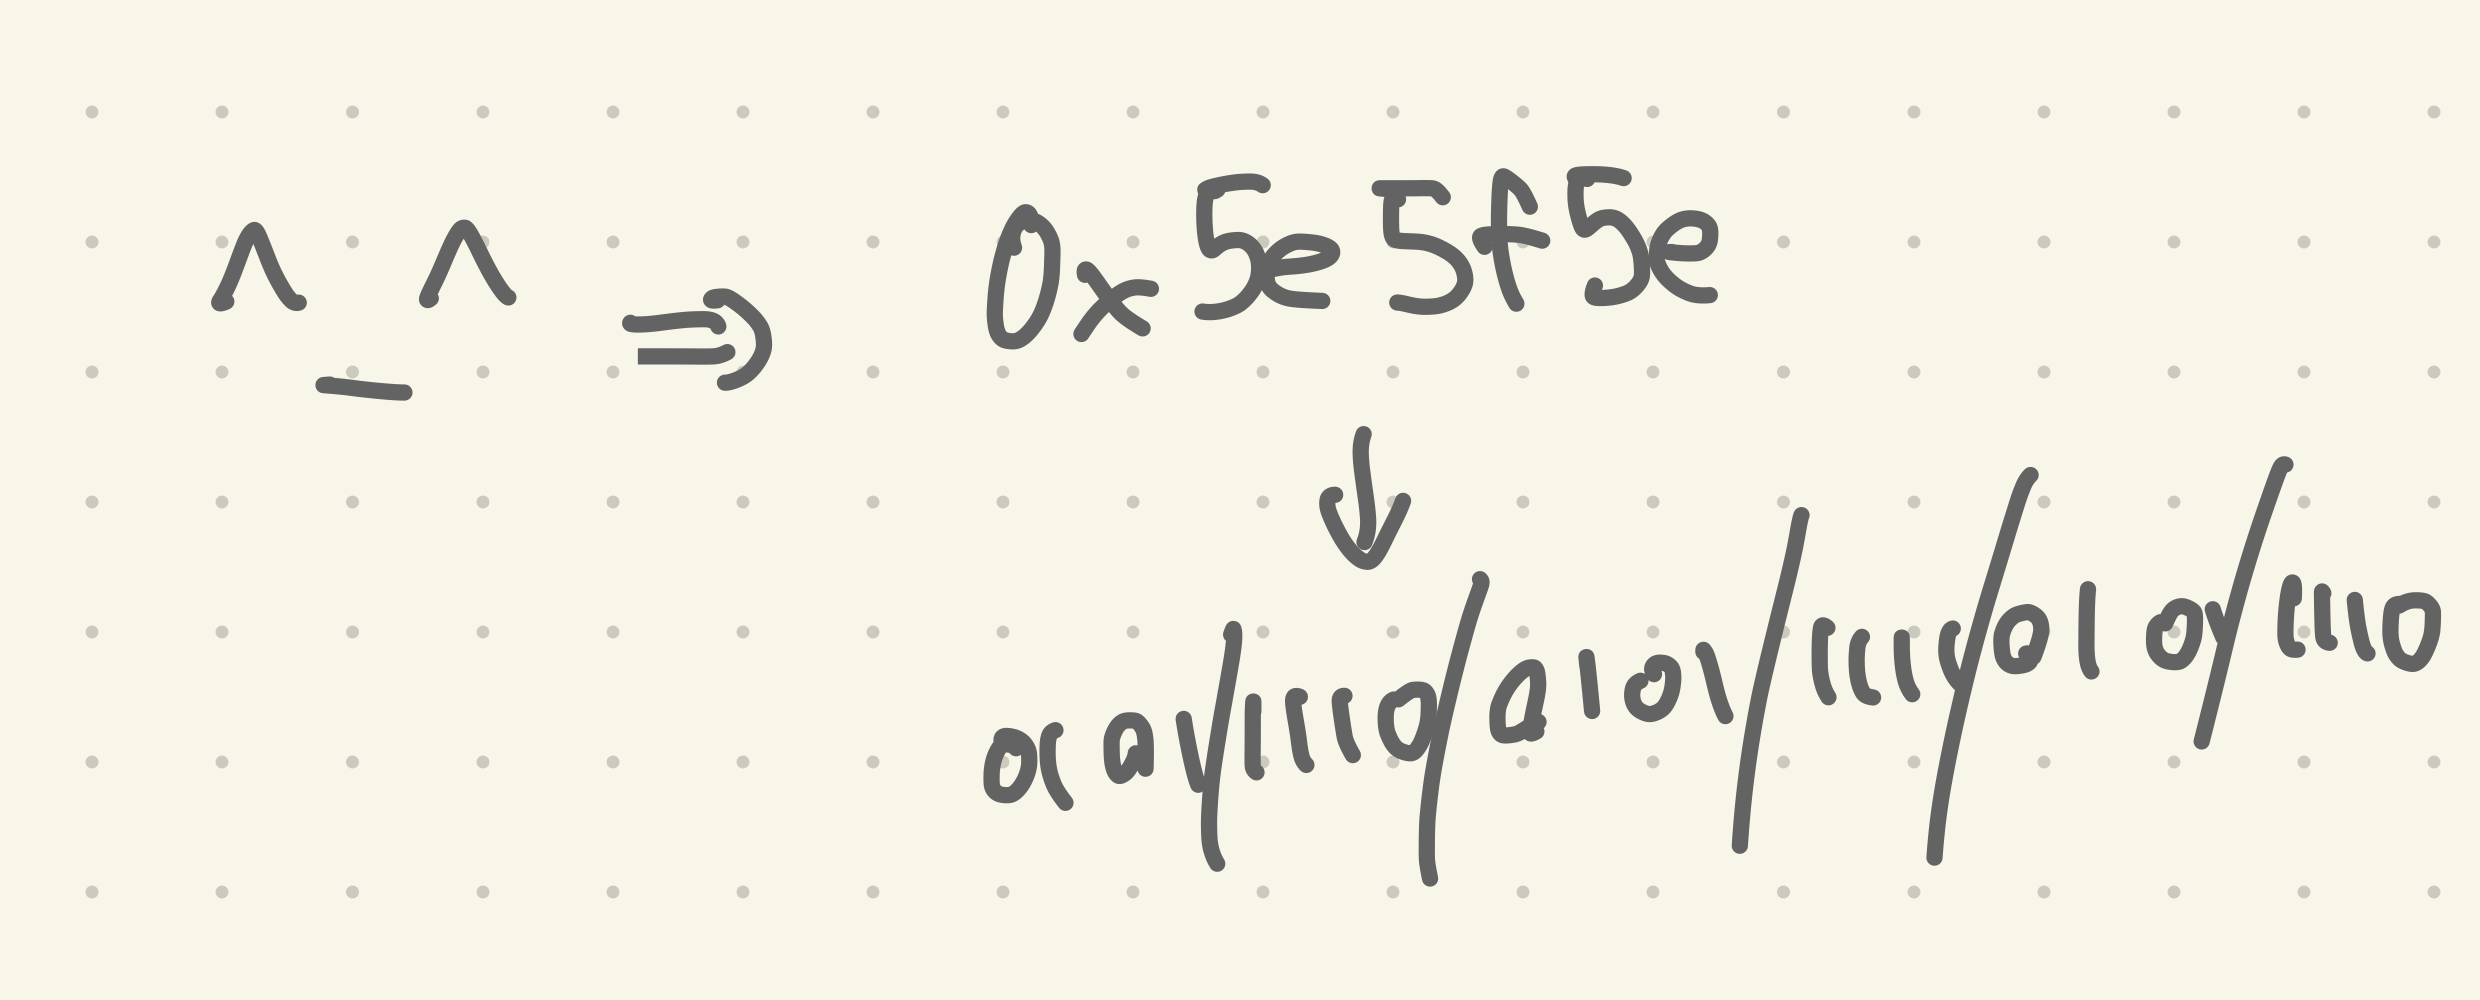 ^_^ ⇒ 0x5e5f5e
↓
0101/1110/0101/1111/0101/1110